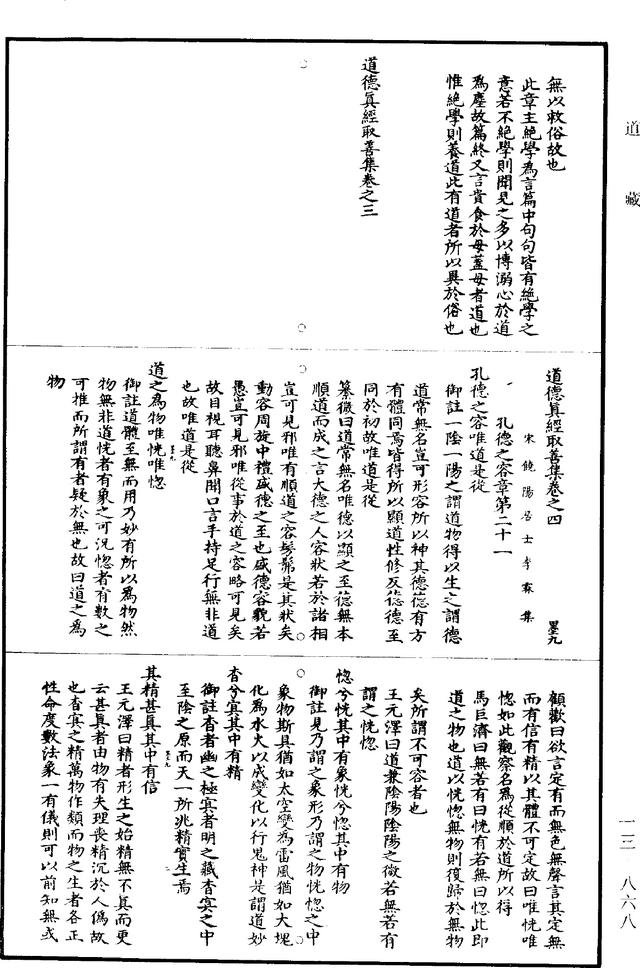 道藏
無以救俗故也
此章主絶學為言篇中句句皆有絶學之
意若不絶學則聞見之多以博溺心於道
為塵故篇終又言貴食於母蓋母者道也
惟絶學則養道此有道者所以異於俗也
道德真經取善集卷之三
道德真經取善集卷之四
宋饒陽居士李霖集
孔德之容章第二十一
孔德之容唯道是從
御註一陰一陽之謂道物得以生之謂德
道常無名豈可形容所以神其德德有方
有體同焉皆得所以顯道性修反德德至
同於初故唯道是從
纂微曰道常無名唯德以顯之至德無本
順道而成之言大德之人容狀若於諸相
豈可見邪唯有順道之容髣髴是其狀矣
動容周旋中禮盛德之至也盛德容貌若
愚豈可見邪唯從事於道之容略可見矣
故目視耳聽鼻聞口言手持足行無非道
也故唯道是從
道之為物唯恍唯惚
御註道體至無而用乃妙有所以為物然
物無非道恍者有象之可況惚者有數之
可推而所謂有者疑於無也故曰道之為
物
顧歡曰欲言定有而無色無聲言其定無
而有信有精以其體不可定故曰唯恍唯
惚如此觀察名為從順於道所以得
馬巨濟曰無若有曰恍有若無曰惚此即
道之物也道以恍惚無物則復歸於無物
矣所謂不可容者也
王元澤曰道兼陰陽陰陽之微若無若有
謂之恍惚
惚兮恍其中有象恍兮惚其中有物
御註見乃謂之象形乃謂之物恍惚之中
象物斯具猶如太空變為雷風猶如大塊
化為水火以成變化以行鬼神是謂道妙
杳兮冥其中有精
御註杳者幽之極冥者明之藏杳冥之中
至陰之原而天一所兆精實生焉
其精甚真其中有信
王元澤曰精者形生之始精無不真而更
云甚真者由物有失理喪精沉於人偽故
也杳冥之精萬物作類而物之生者各正
性命度數法象一有儀則可以前知無或
一三 八六八